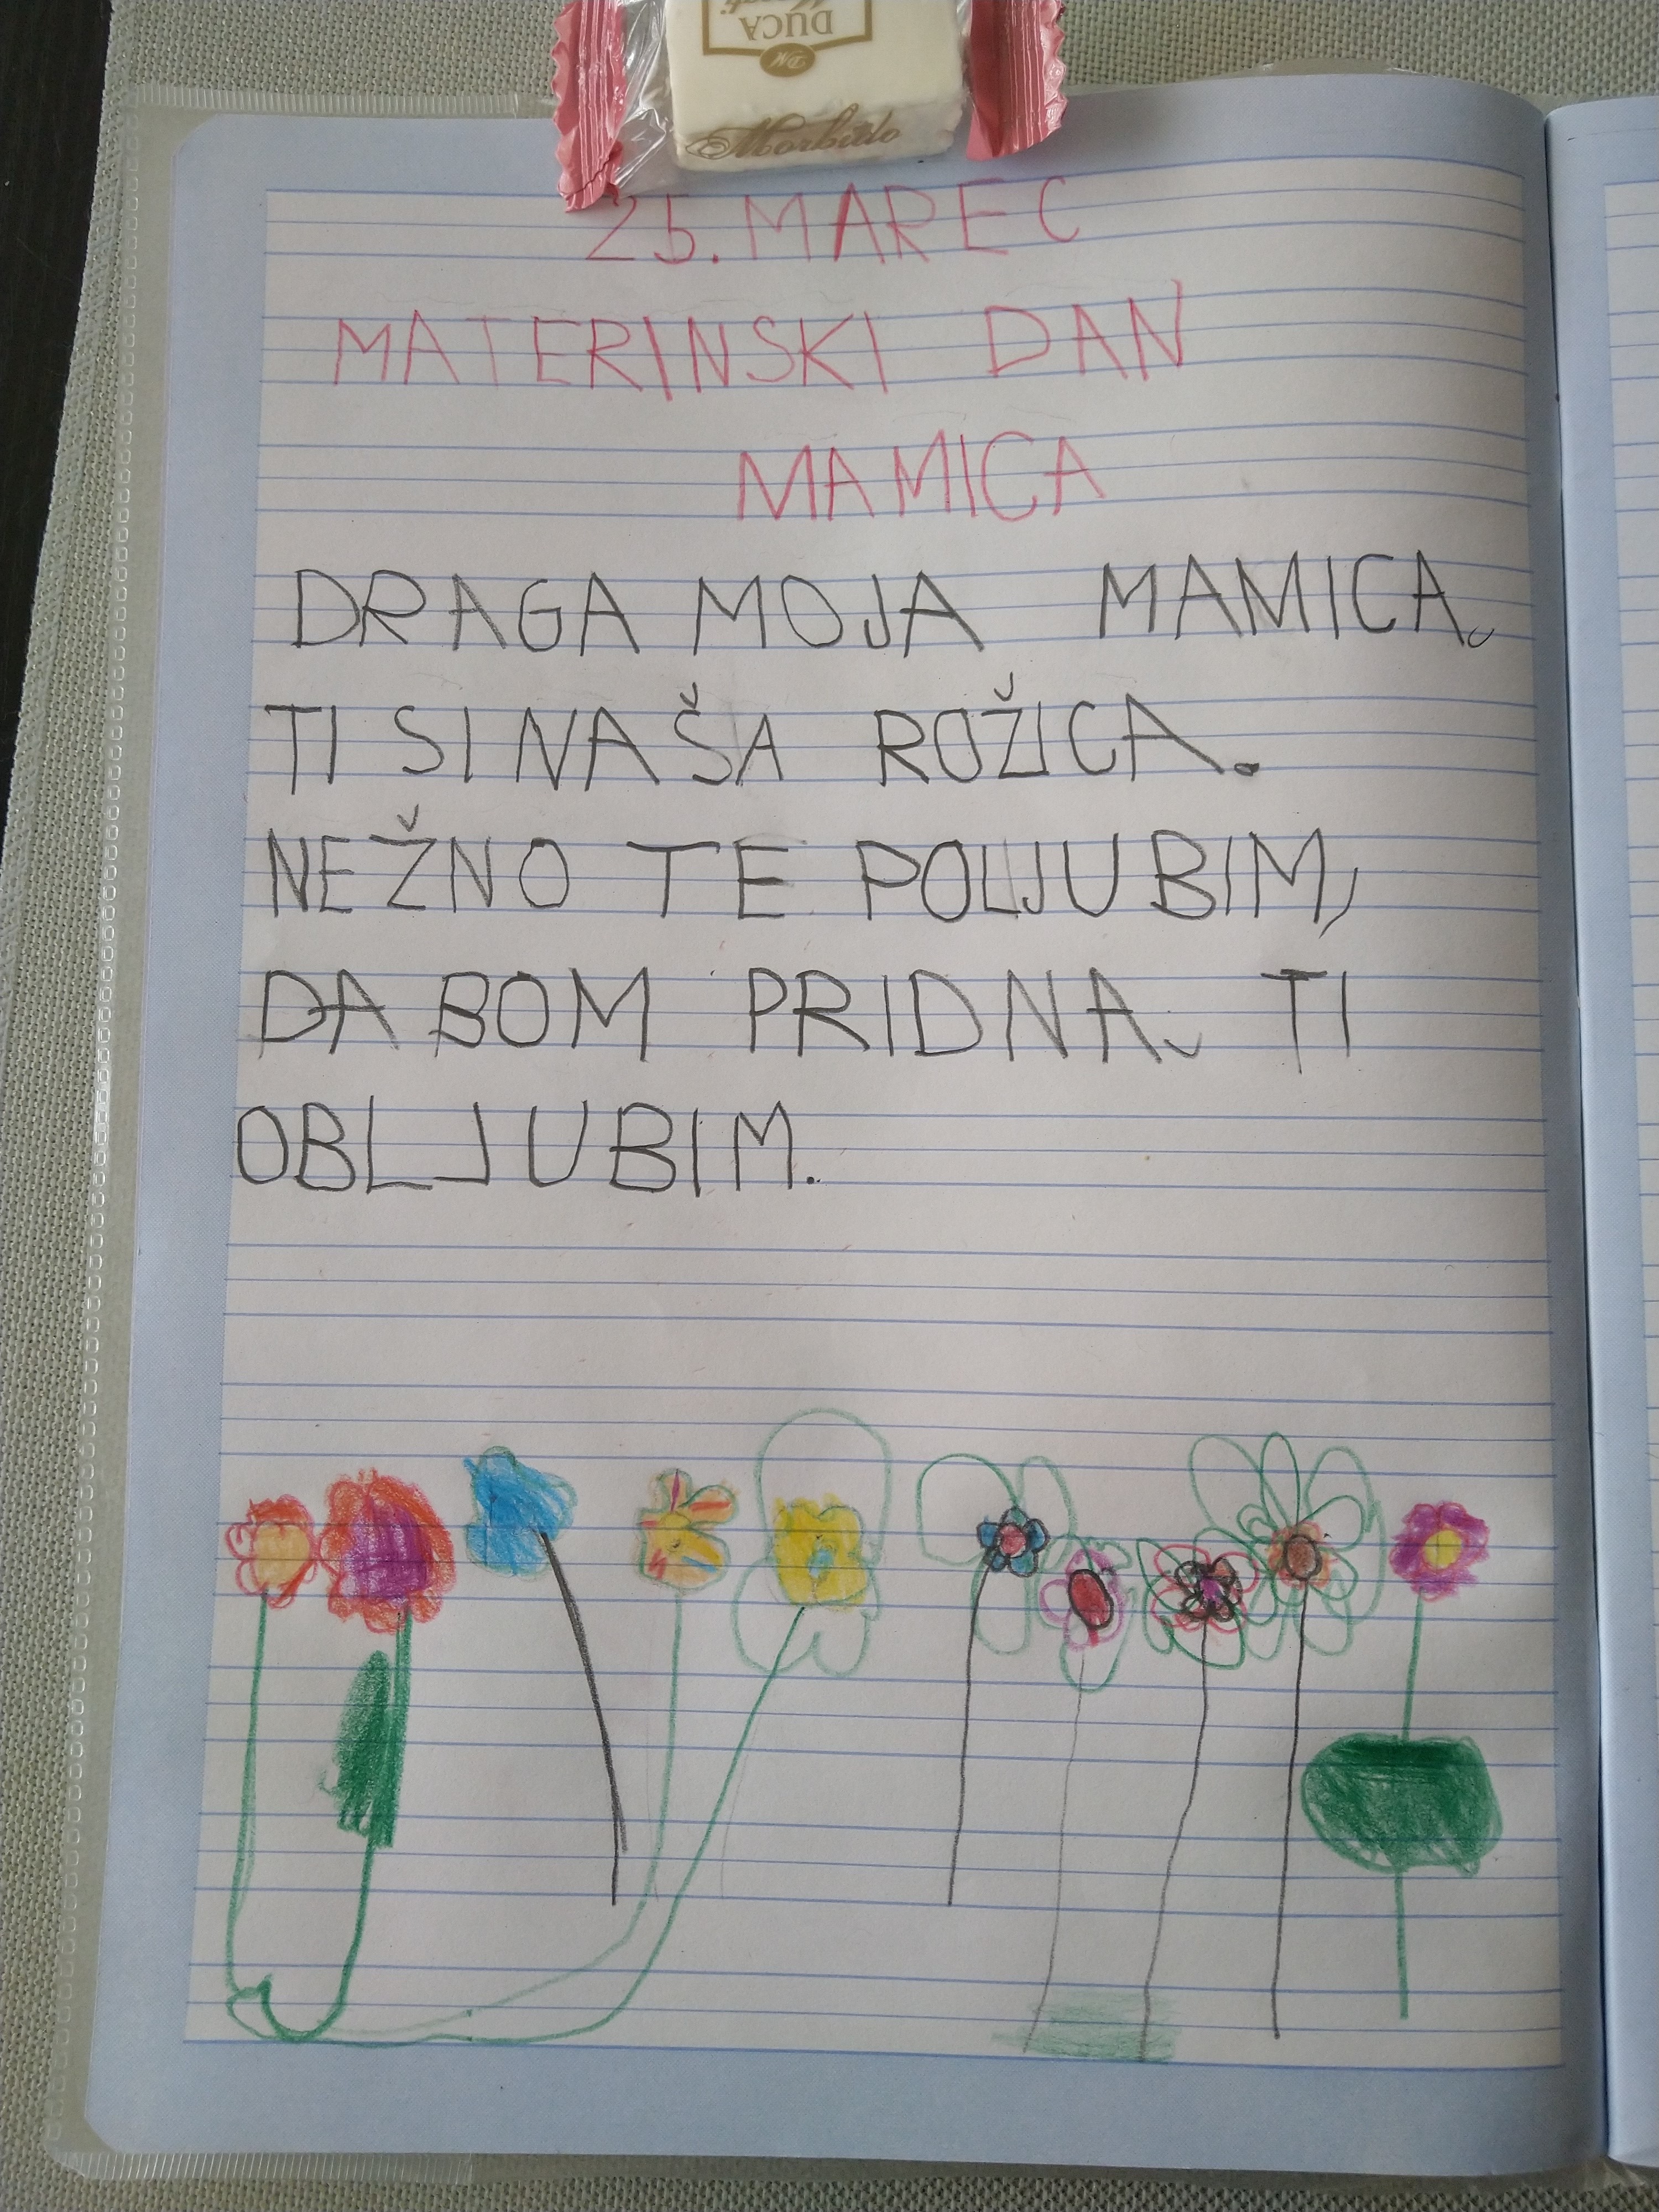 DUCA
Morbido
25. MAREC
MATERINSKI DAN
MAMICA
DRAGA MOJA MAMICA,
TI SI NAŠA ROŽICA.
NEŽNO TE POLJUBIM,
DA BOM PRIDNA, TI
OBLJUBIM.